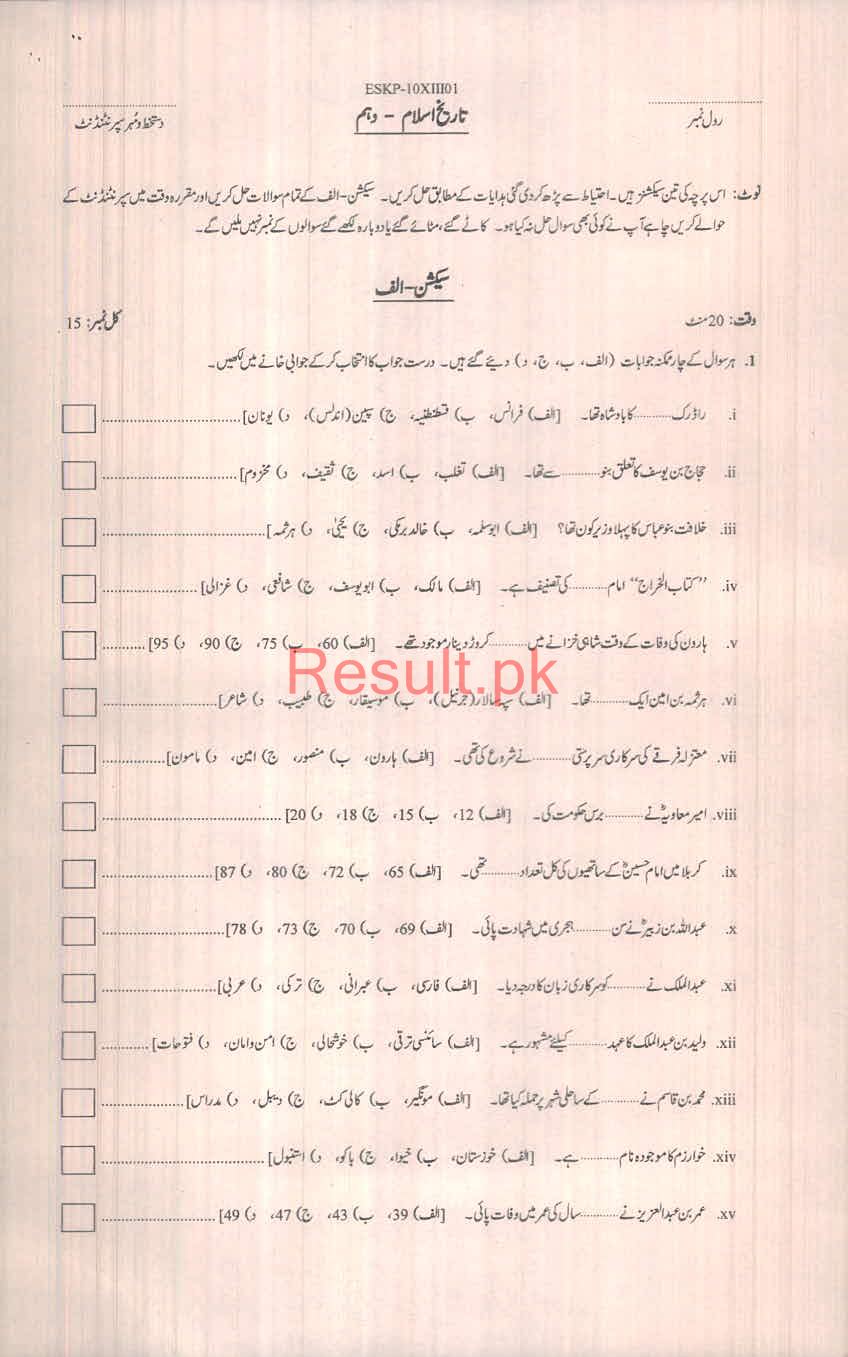 ESKP-10XIII01
رول نمبر
تاریخ اسلام - دہم
دستخط و مہر سپرنٹنڈنٹ
نوٹ: اس پرچہ کی تین سیکشنز ہیں۔ احتیاط سے پڑھ کر دی گئی ہدایات کے مطابق حل کریں۔ سیکشن-الف کے تمام سوالات حل کریں اور مقررہ وقت میں سپرنٹنڈنٹ کے
حوالے کریں چاہے آپ نے کوئی بھی سوال حل نہ کیا ہو۔ کاٹے گئے، مٹائے گئے یا دوبارہ لکھے گئے سوالوں کے نمبر نہیں ملیں گے۔
سیکشن-الف
وقت: 20 منٹ کل نمبر: 15
1. ہر سوال کے چار ممکنہ جوابات (الف، ب، ج، د) دیئے گئے ہیں۔ درست جواب کا انتخاب کر کے جوابی خانے میں لکھیں۔
i. راڈرک ........... کا بادشاہ تھا۔ [الف) فرانس، ب) قسطنطنیہ، ج) سپین (اندلس)، د) یونان]
ii. حجاج بن یوسف کا تعلق بنو ........... سے تھا۔ [الف) تغلب، ب) اسد، ج) ثقیف، د) مخزوم]
iii. خلافت بنو عباس کا پہلا وزیر کون تھا؟ [الف) ابوسلمہ، ب) خالد برمکی، ج) یحیٰی، د) ہرثمہ]
iv. ”کتاب الخراج“ امام ........... کی تصنیف ہے۔ [الف) مالک، ب) ابویوسف، ج) شافعی، د) غزالی]
v. ہارون کی وفات کے وقت شاہی خزانے میں ........... کروڑ دینار موجود تھے۔ [الف) 60، ب) 75، ج) 90، د) 95]
vi. ہرثمہ بن امین ایک ........... تھا۔ [الف) سپہ سالار (جرنیل)، ب) موسیقار، ج) طبیب، د) شاعر]
vii. معتزلہ فرقے کی سرکاری سرپرستی ........... نے شروع کی تھی۔ [الف) ہارون، ب) منصور، ج) امین، د) مامون]
viii. امیر معاویہؓ نے ........... برس حکومت کی۔ [الف) 12، ب) 15، ج) 18، د) 20]
ix. کربلا میں امام حسینؓ کے ساتھیوں کی کل تعداد ........... تھی۔ [الف) 65، ب) 72، ج) 80، د) 87]
x. عبداللہ بن زبیرؓ نے سن ........... ہجری میں شہادت پائی۔ [الف) 69، ب) 70، ج) 73، د) 78]
xi. عبدالملک نے ........... کو سرکاری زبان کا درجہ دیا۔ [الف) فارسی، ب) عبرانی، ج) ترکی، د) عربی]
xii. ولید بن عبدالملک کا عہد ........... کیلئے مشہور ہے۔ [الف) سائنسی ترقی، ب) خوشحالی، ج) امن و امان، د) فتوحات]
xiii. محمد بن قاسم نے ........... کے ساحلی شہر پر حملہ کیا تھا۔ [الف) مونگیر، ب) کالی کٹ، ج) دیبل، د) مدراس]
xiv. خوارزم کا موجودہ نام ........... ہے۔ [الف) خوزستان، ب) خیوا، ج) باکو، د) استنبول]
xv. عمر بن عبدالعزیز نے ........... سال کی عمر میں وفات پائی۔ [الف) 39، ب) 43، ج) 47، د) 49]
Result.pk